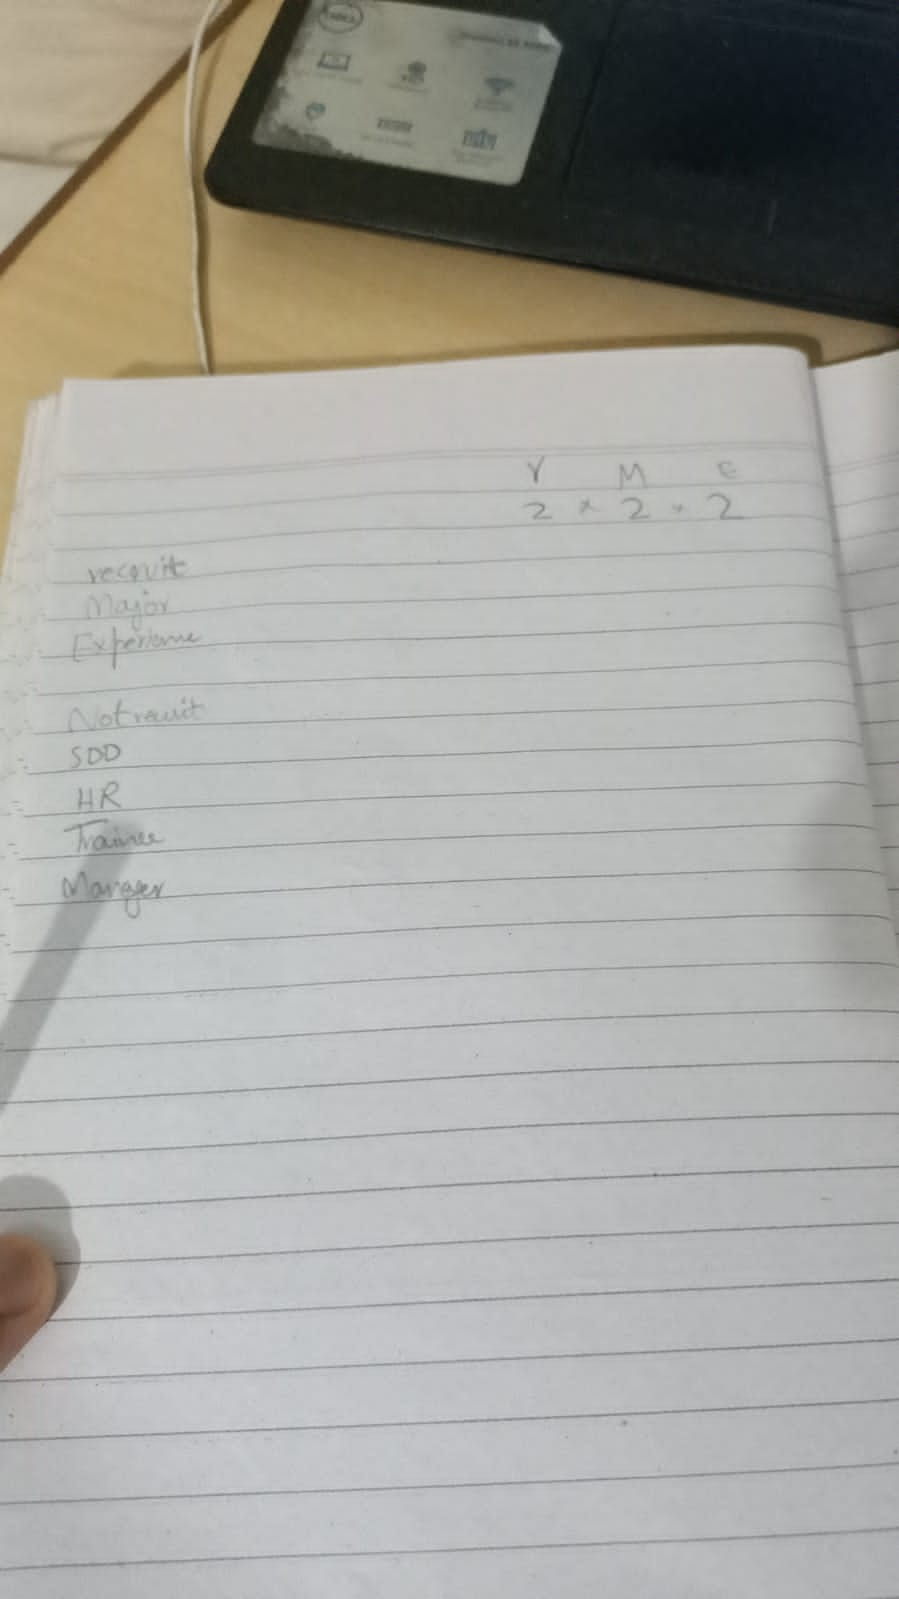 DELL
Y M E
2 × 2 × 2
recquit
Major
Experienne
Not recuit
SDD
HR
Trainee
Manger